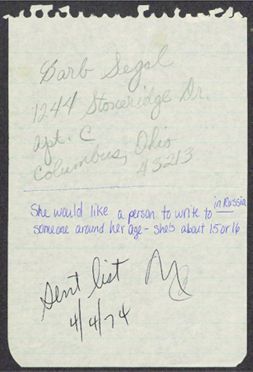 Barb Segal
1244 Stoneridge Dr.
Apt. C
Columbus, Ohio
43213
She would like a person to write to in Russia
someone around her age - she's about 15 or 16
Sent list
4/4/74